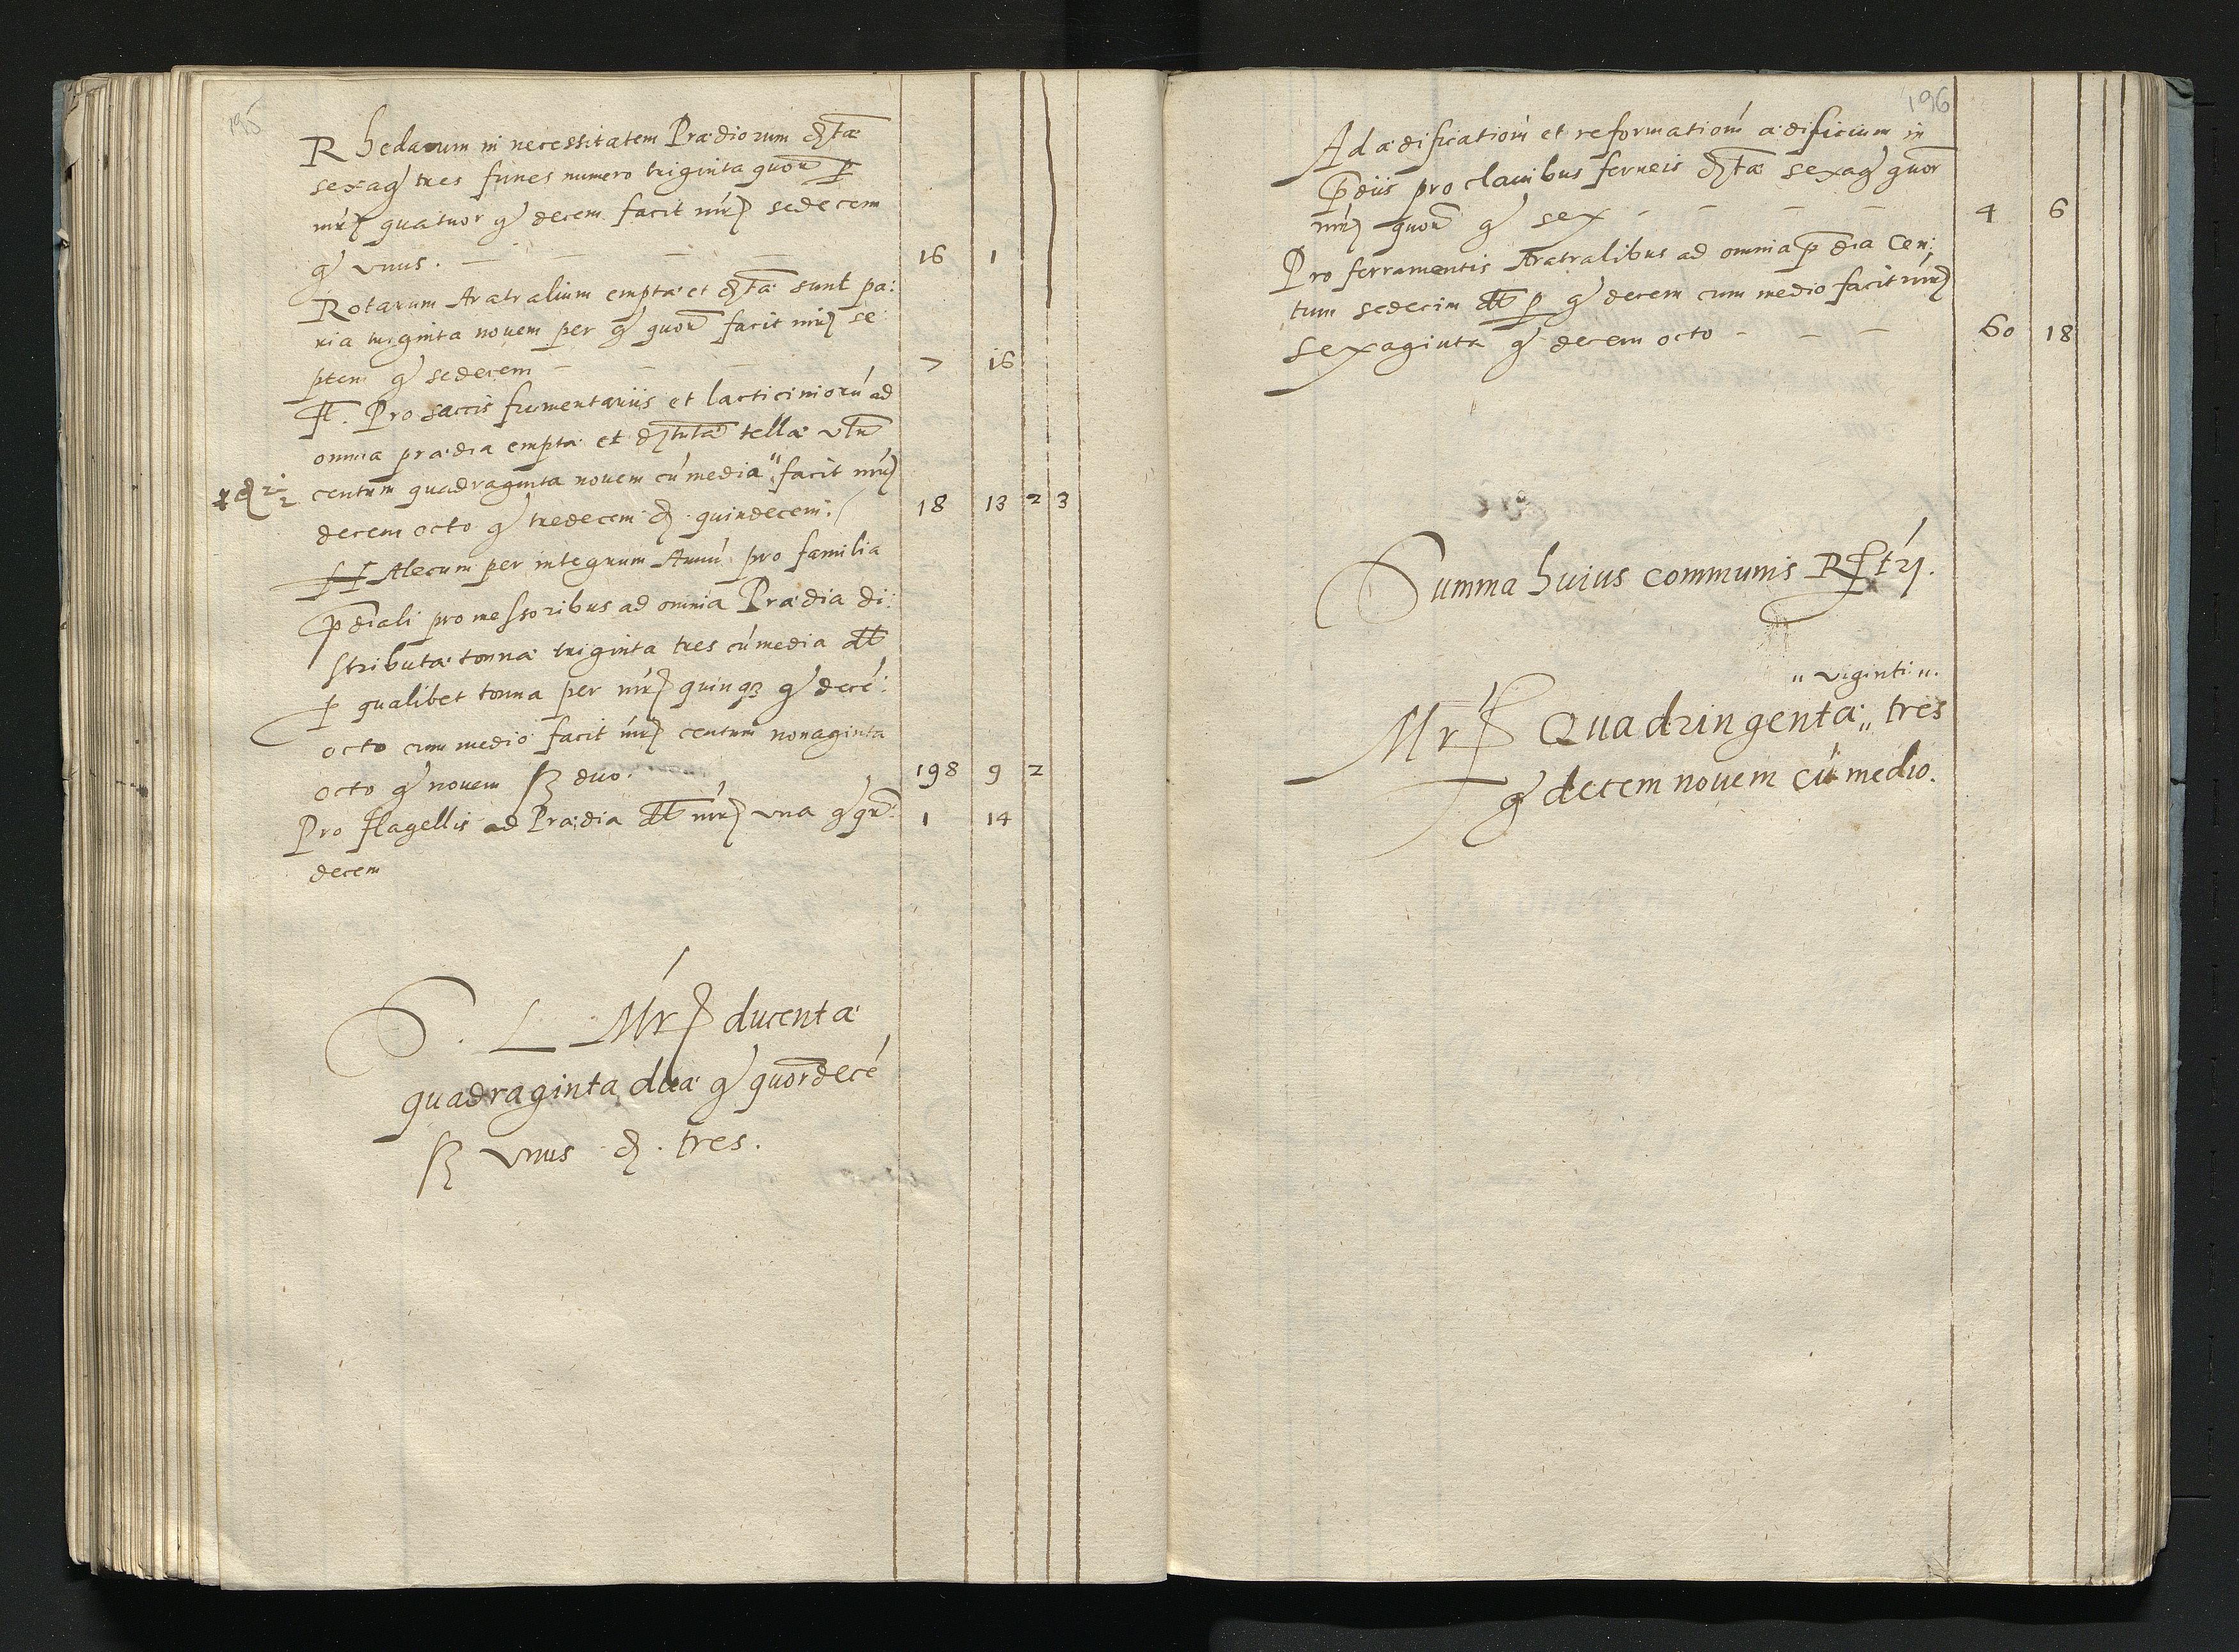 195
Rhedarum in necessitatem Prædiorum dtæ
sexag tres funes numero triginta quor p
mr quatuor g decem facit mr sedecem
g vnus. — — — — 16 1
Rotarum Aratralium emptæ et dtæ sunt pa:
ria triginta nouem per g quor facit mr se
ptem g sedecem — — — 7 16
It. Pro saccis frumentariis et lacticiniorú ad
omnia prædia emptæ et dtributæ tellæ vln
centum quadraginta nouem cú media" facit mr
decem octo g tredecem d. quindecem: 18 13 2 3
It Alecum per integrum Annú pro familia
pdiali pro messoribus ad omnia Prædia di:
stributæ tonnæ triginta tres cú media dt
p qualibet tonna per mr quinq g decé:
octo cum medio facit mr centum nonaginta
octo g nouem ß duo. 198 9 2
Pro flagellis ad Prædia dt mr vna g qr: 1 14
decem
S. L Mr ducentæ
quadraginta duæ g quordecé
ß vnus d. tres.
196
Ad ædificationú et reformationú ædificium in
pdiis pro clauibus ferreis dtæ sexag quor
mr quor g sex — — — — 4 6
Pro ferramentis Aratralibus ad omnia p dia Cen:
tum sedecim dt p g decem cum medio facit mr
sexaginta g decem octo — — — 60 18
Summa huius communis Rstri.
" viginti ".
Mr Quadringentæ " tres
g decem nouem cú medio.